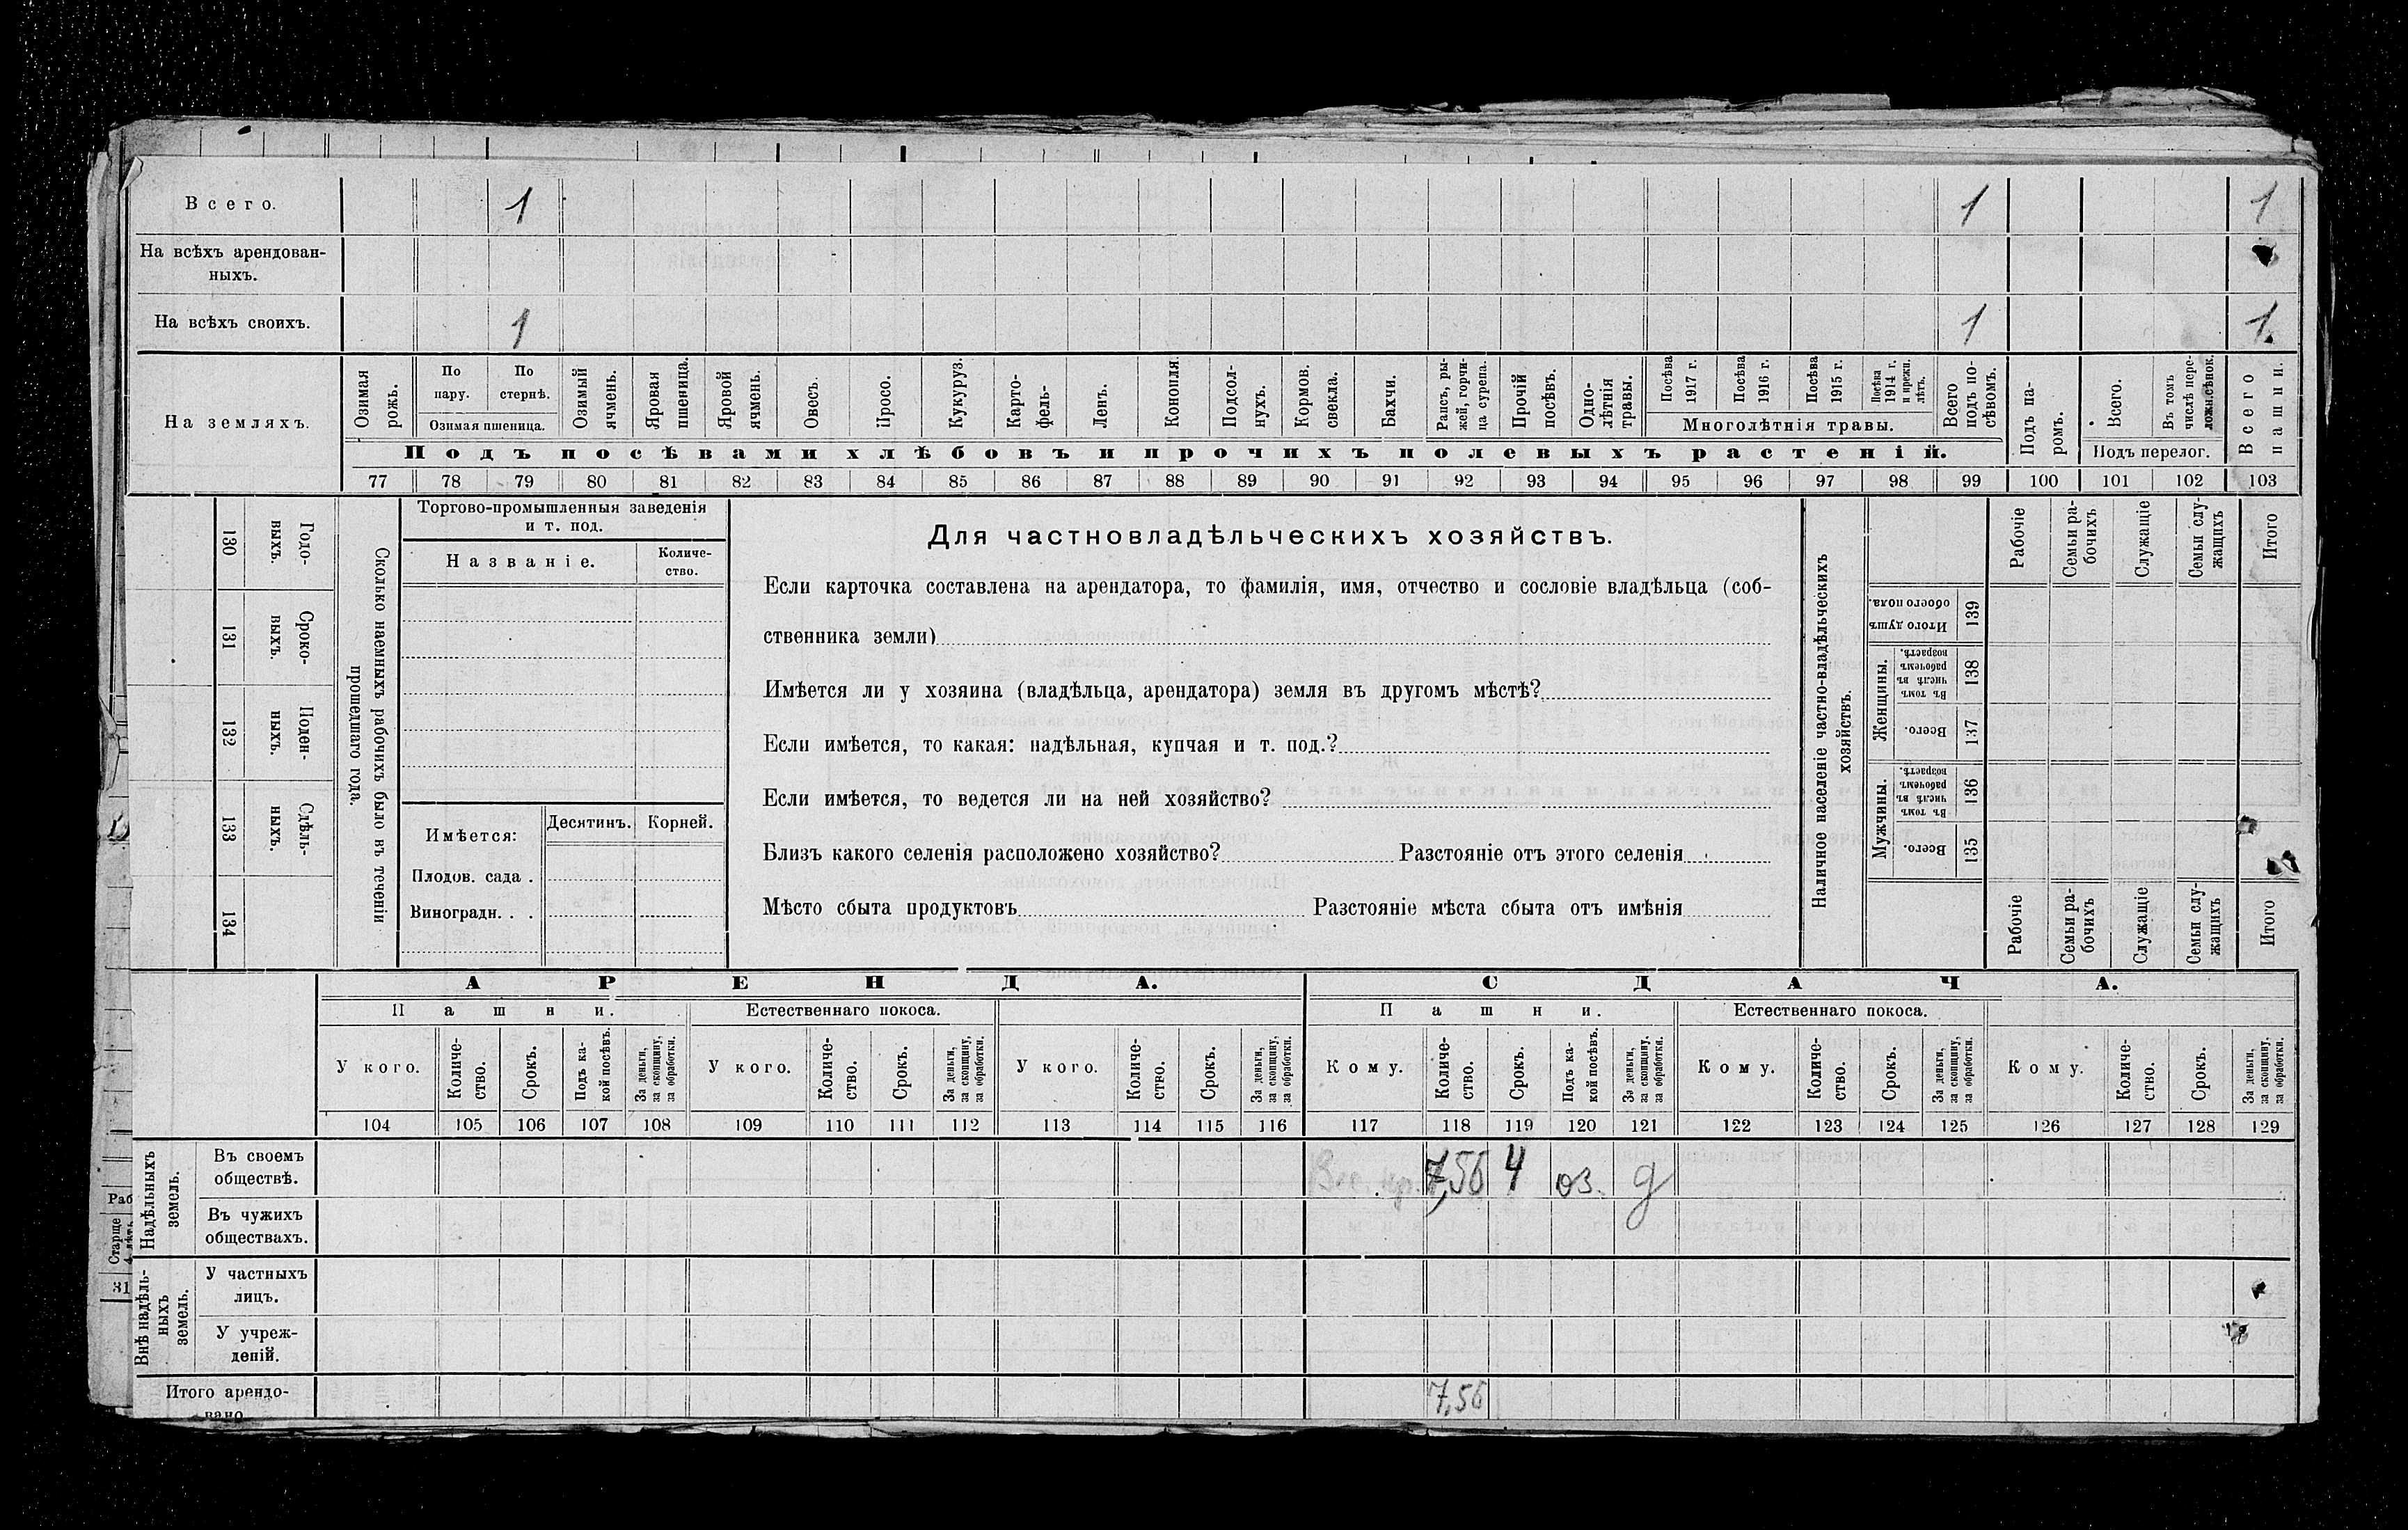 Всего. 1 1 1
На всѣхъ арендован-
ныхъ.
На всѣхъ своихъ. 1 1 1
На земляхъ.
Озимая рожь.
По пару.
По стернѣ.
Озимая пшеница.
Озимый ячмень.
Яровая пшеница.
Яровой ячмень.
Овесъ.
Просо.
Кукуруз.
Карто-
фель-
Ленъ.
Конопля.
Подсол-
нухъ.
Кормов.
свекла.
Бахчи.
Рапсъ, ры-
жей, горчи-
ца сурепа.
Прочій
посѣвъ.
Одно-
лѣтнія
травы.
Посѣва
1917 г.
Посѣва
1916 г.
Посѣва
1915 г.
Посѣва
1914 г.
и прежн.
лѣтъ.
Многолѣтнія травы.
Всего
подъ по-
сѣвомъ.
Подъ па-
ромъ.
Всего.
Въ томъ
числѣ пере-
ложн. сѣнок.
Подъ перелог.
Всего
пашни.
Подъ посѣвами хлѣбовъ и прочихъ полевыхъ растеній.
77 78 79 80 81 82 83 84 85 86 87 88 89 90 91 92 93 94 95 96 97 98 99 100 101 102 103
130 Годо-
выхъ.
131 Сроко-
выхъ.
132 Поден-
ныхъ.
133 Сдѣль-
ныхъ.
134
Сколько наемныхъ рабочихъ было въ теченіи
прошедшаго года.
Торгово-промышленныя заведенія
и т. под.
Названіе.
Количе-
ство.
Имѣется: Десятинъ. Корней.
Плодов. сада .
Виноградн. . .
Для частновладѣльческихъ хозяйствъ.
Если карточка составлена на арендатора, то фамилія, имя, отчество и сословіе владѣльца (соб-
ственника земли)
Имѣется ли у хозяина (владѣльца, арендатора) земля въ другомъ мѣстѣ?
Если имѣется, то какая: надѣльная, купчая и т. под.?
Если имѣется, то ведется ли на ней хозяйство?
Близъ какого селенія расположено хозяйство? Разстояніе отъ этого селенія
Мѣсто сбыта продуктовъ Разстояніе мѣста сбыта отъ имѣнія
Наличное населеніе частно-владѣльческихъ
хозяйствъ.
Рабочіе
Семьи ра-
бочихъ
Служащіе
Семьи слу-
жащихъ
Итого
Итого душъ
обоего пола.
139
Женщины.
Въ томъ
числѣ въ
рабочемъ
возрастѣ.
138
Всего.
137
Мужчины.
Въ томъ
числѣ въ
рабочемъ
возрастѣ.
136
Всего.
135
Рабочіе
Семьи ра-
бочихъ
Служащіе
Семьи слу-
жащихъ
Итого
АРЕНДА. СДАЧА.
Пашни. Естественнаго покоса. Пашни. Естественнаго покоса.
У кого.
Количе-
ство.
Срокъ.
Подъ ка-
кой посѣвъ.
За деньги,
за скопщину,
за обработки.
У кого.
Количе-
ство.
Срокъ.
За деньги,
за скопщину,
за обработки.
У кого.
Количе-
ство.
Срокъ.
За деньги,
за скопщину,
за обработки.
Кому.
Количе-
ство.
Срокъ.
Подъ ка-
кой посѣвъ.
За деньги,
за скопщину,
за обработки.
Кому.
Количе-
ство.
Срокъ.
За деньги,
за скопщину,
за обработки.
Кому.
Количе-
ство.
Срокъ.
За деньги,
за скопщину,
за обработки.
104 105 106 107 108 109 110 111 112 113 114 115 116 117 118 119 120 121 122 123 124 125 126 127 128 129
Надѣльныхъ
земель.
Въ своемъ
обществѣ.
7,56 4 оз. д
Въ чужихъ
обществахъ.
Внѣ надѣль-
ныхъ
земель.
У частныхъ
лицъ.
У учреж-
деній.
Итого арендо-
вано
7,56
Раб
Старше
31